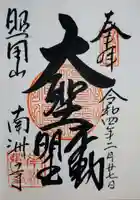 奉拝
令和四年二月廿七日
大聖不動明王
照圓山
南洲寺